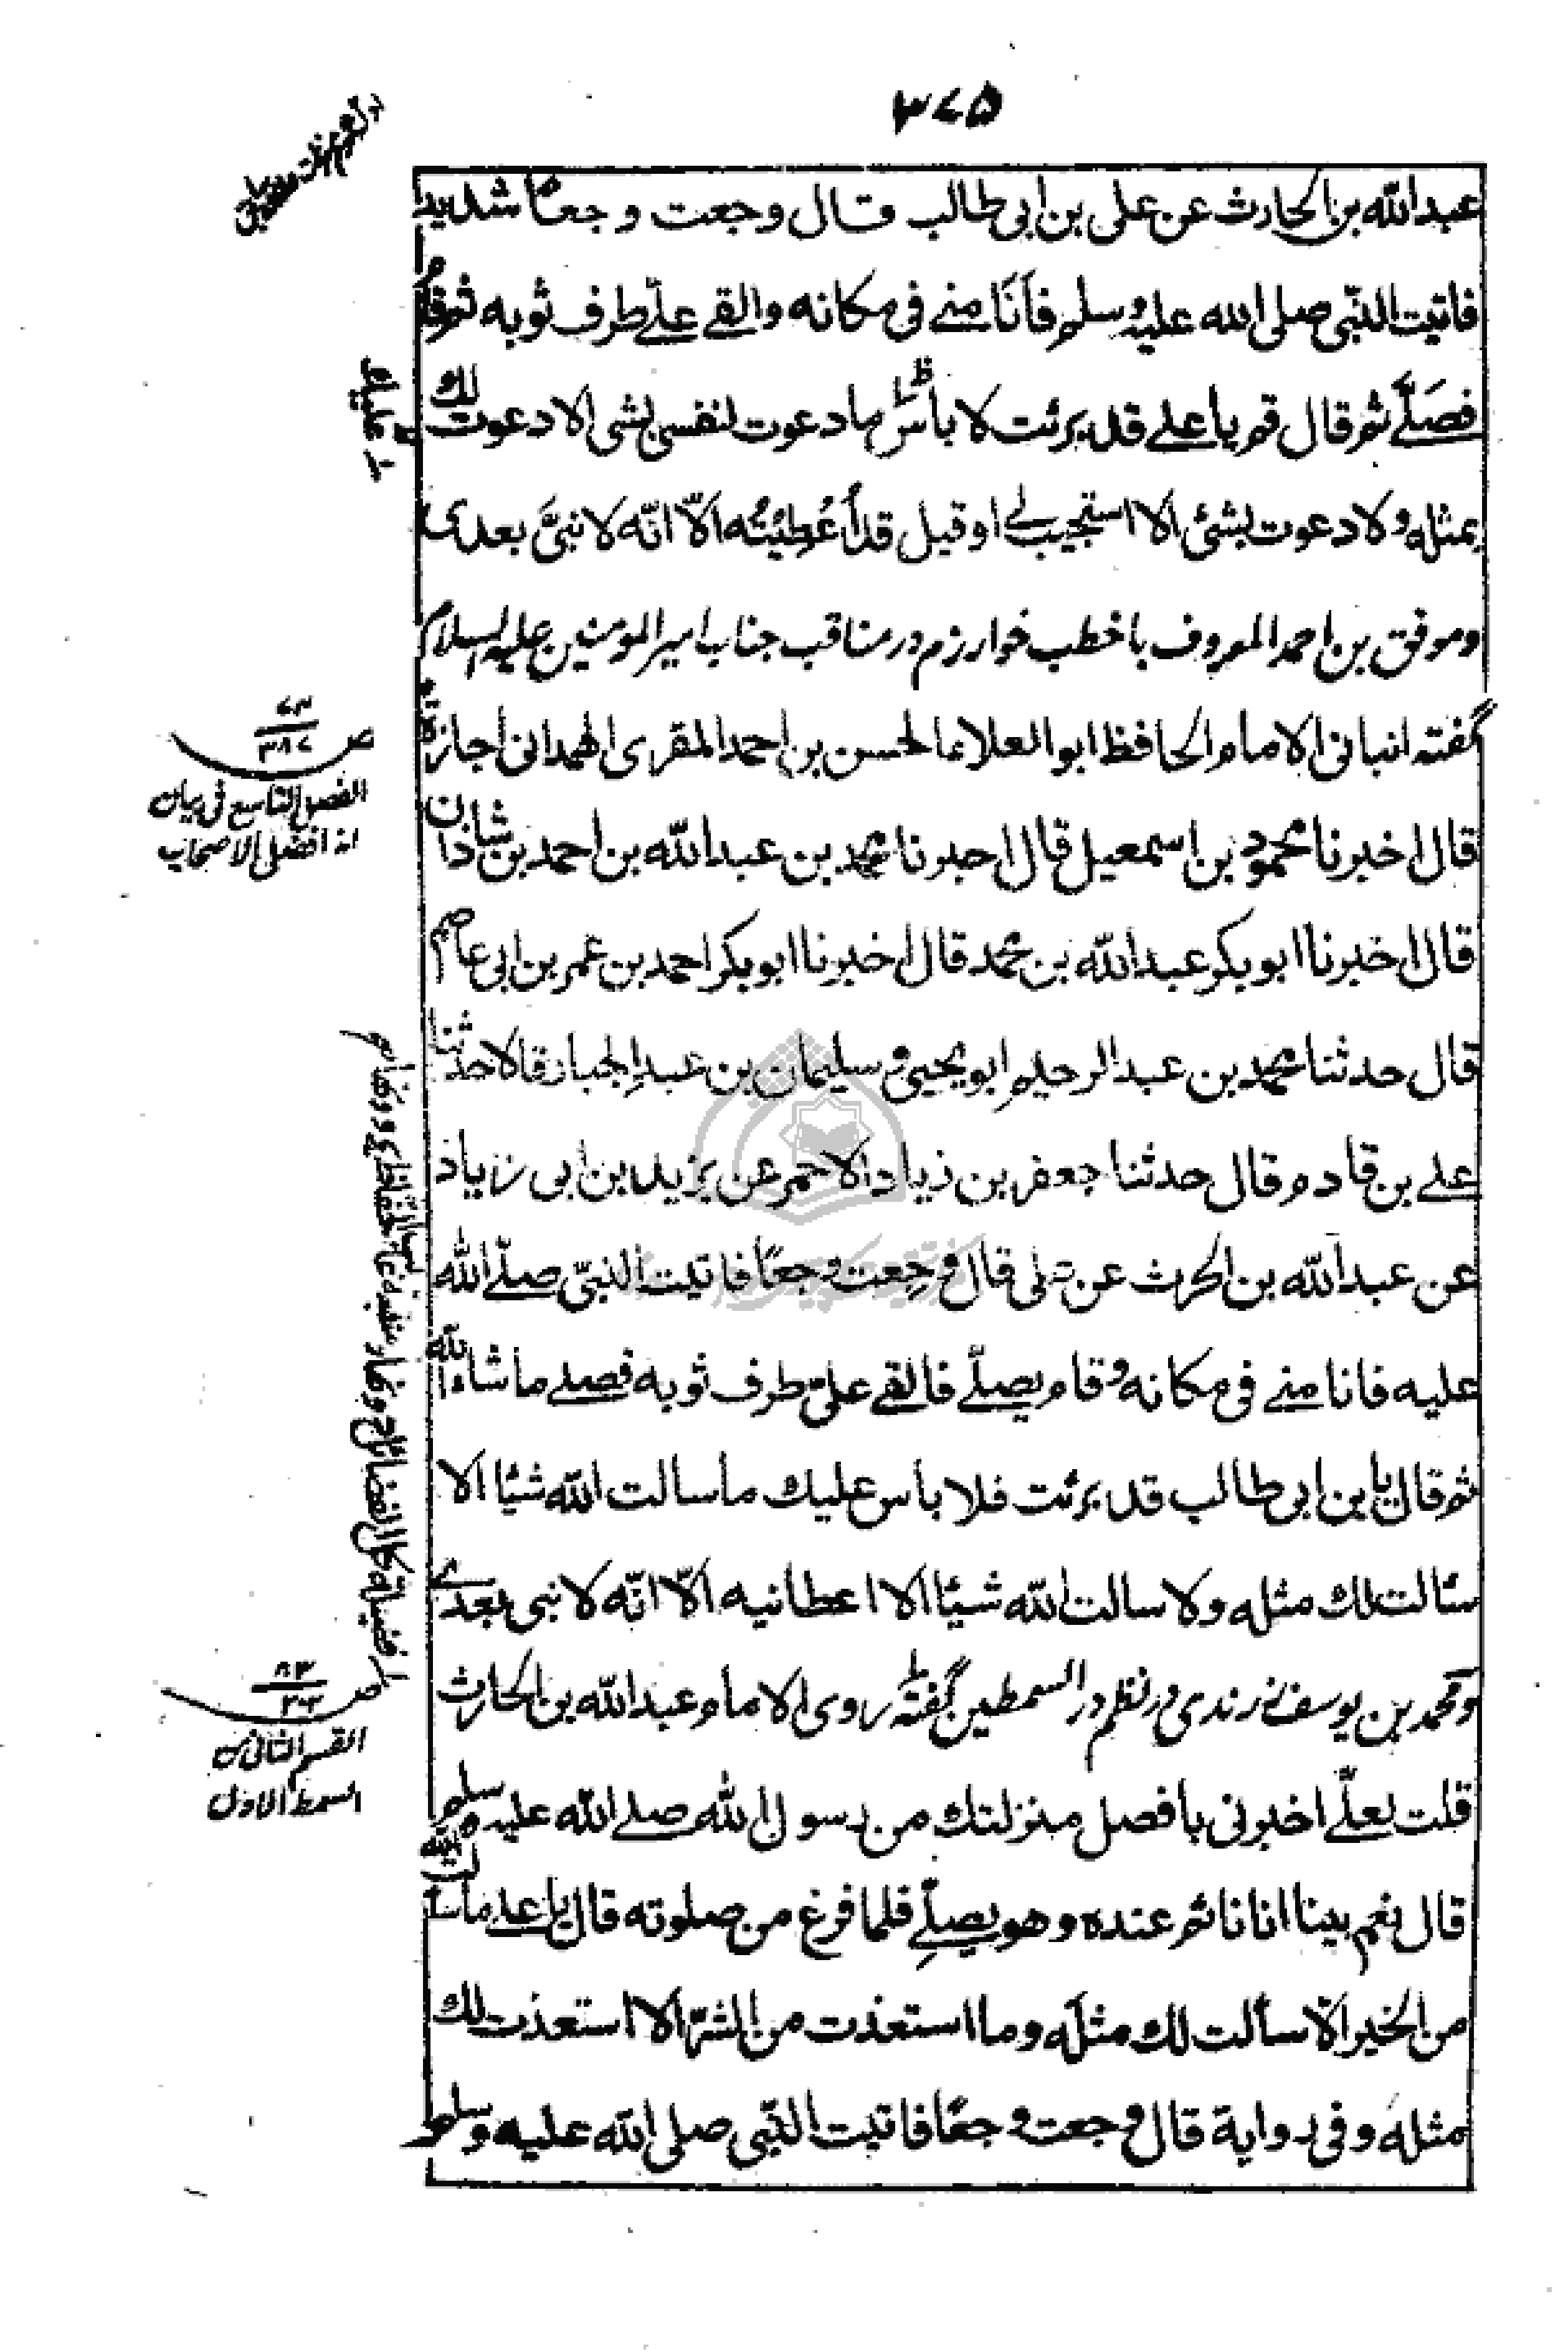 ۳۷۵
عبدالله بن الحارث عن علی بن ابی طالب قال وجعت وجعًا شدیدا
فاتیت النّبی صلی الله علیه وسلم فاَنَامنے فی مکانه والقے علےّ طرف ثوبه ثم قام
فصَلّے ثم قال قم یا علے قد برئت لا باَس ما دعوت لنفسی بشی الا دعوت لك
بمثله ولا دعوت بشئ الا استجیب لے او قیل قد اُعُطِیْتُه الاّ انّه لا نبیَّ بعدی
وموفق بن احمد المعروف باخطب خوارزم در مناقب جناب امیر المومنین علیه السلام
گفته انبانی الامام الحافظ ابو العلاء الحسن بن احمد المقری الهمدانی اجازة
قال اخبرنا محمود بن اسمعیل قال اخبرنا محمد بن عبدالله بن احمد بن شاذان
قال اخبرنا ابو بکر عبدالله بن محمد قال اخبرنا ابو بکر احمد بن عمر بن ابی عاصم
قال حدثنا محمد بن عبد الرحیم ابو یحیی و سلیمان بن عبد الجبار قالا حدثنا
علے بن قادم قال حدثنا جعفر بن زیاد الاحمر عن یزید بن ابی زیاد
عن عبدالله بن الحرث عن علی قال وجعت وجعًا فاتیت النبیّ صلّے الله
علیه فانا منے فی مکانه وقام یصلّے فالقے علیّ طرف ثوبه فصلے ما شاء الله
ثم قال یا بن ابی طالب قد برئت فلا باس علیك ما سالت الله شیًا الا
سئالت لك مثله ولا سالت الله شیًا الا اعطانیه الاّ انّه لا نبی بعدی
ومحمد بن یوسف زرندی در نظم درر السمطین گفته روی الامام عبدالله بن الحارث
قلت لعلّے اخبرنی بافضل منزلتك من رسول الله صلے الله علیه وسلم
قال نعم بینا انا نائم عنده وهو یصلّے فلما فرغ من صلوته قال یا علے ما سالت الله
من الخیر الاّ سألت لك مثلَه وما استعذت من الشرّ الا استعذت لك
مثلَه وفی روایة قال وجعت وجعًا فاتیت النّبی صلی الله علیه وسلم
علیك
ص ۶۳
۳۸۷
الفصل التاسع فی بیان
انه افضل الاصحاب
ص ۸۳
۲۳۳
القسم الثانی من
السمط الاول